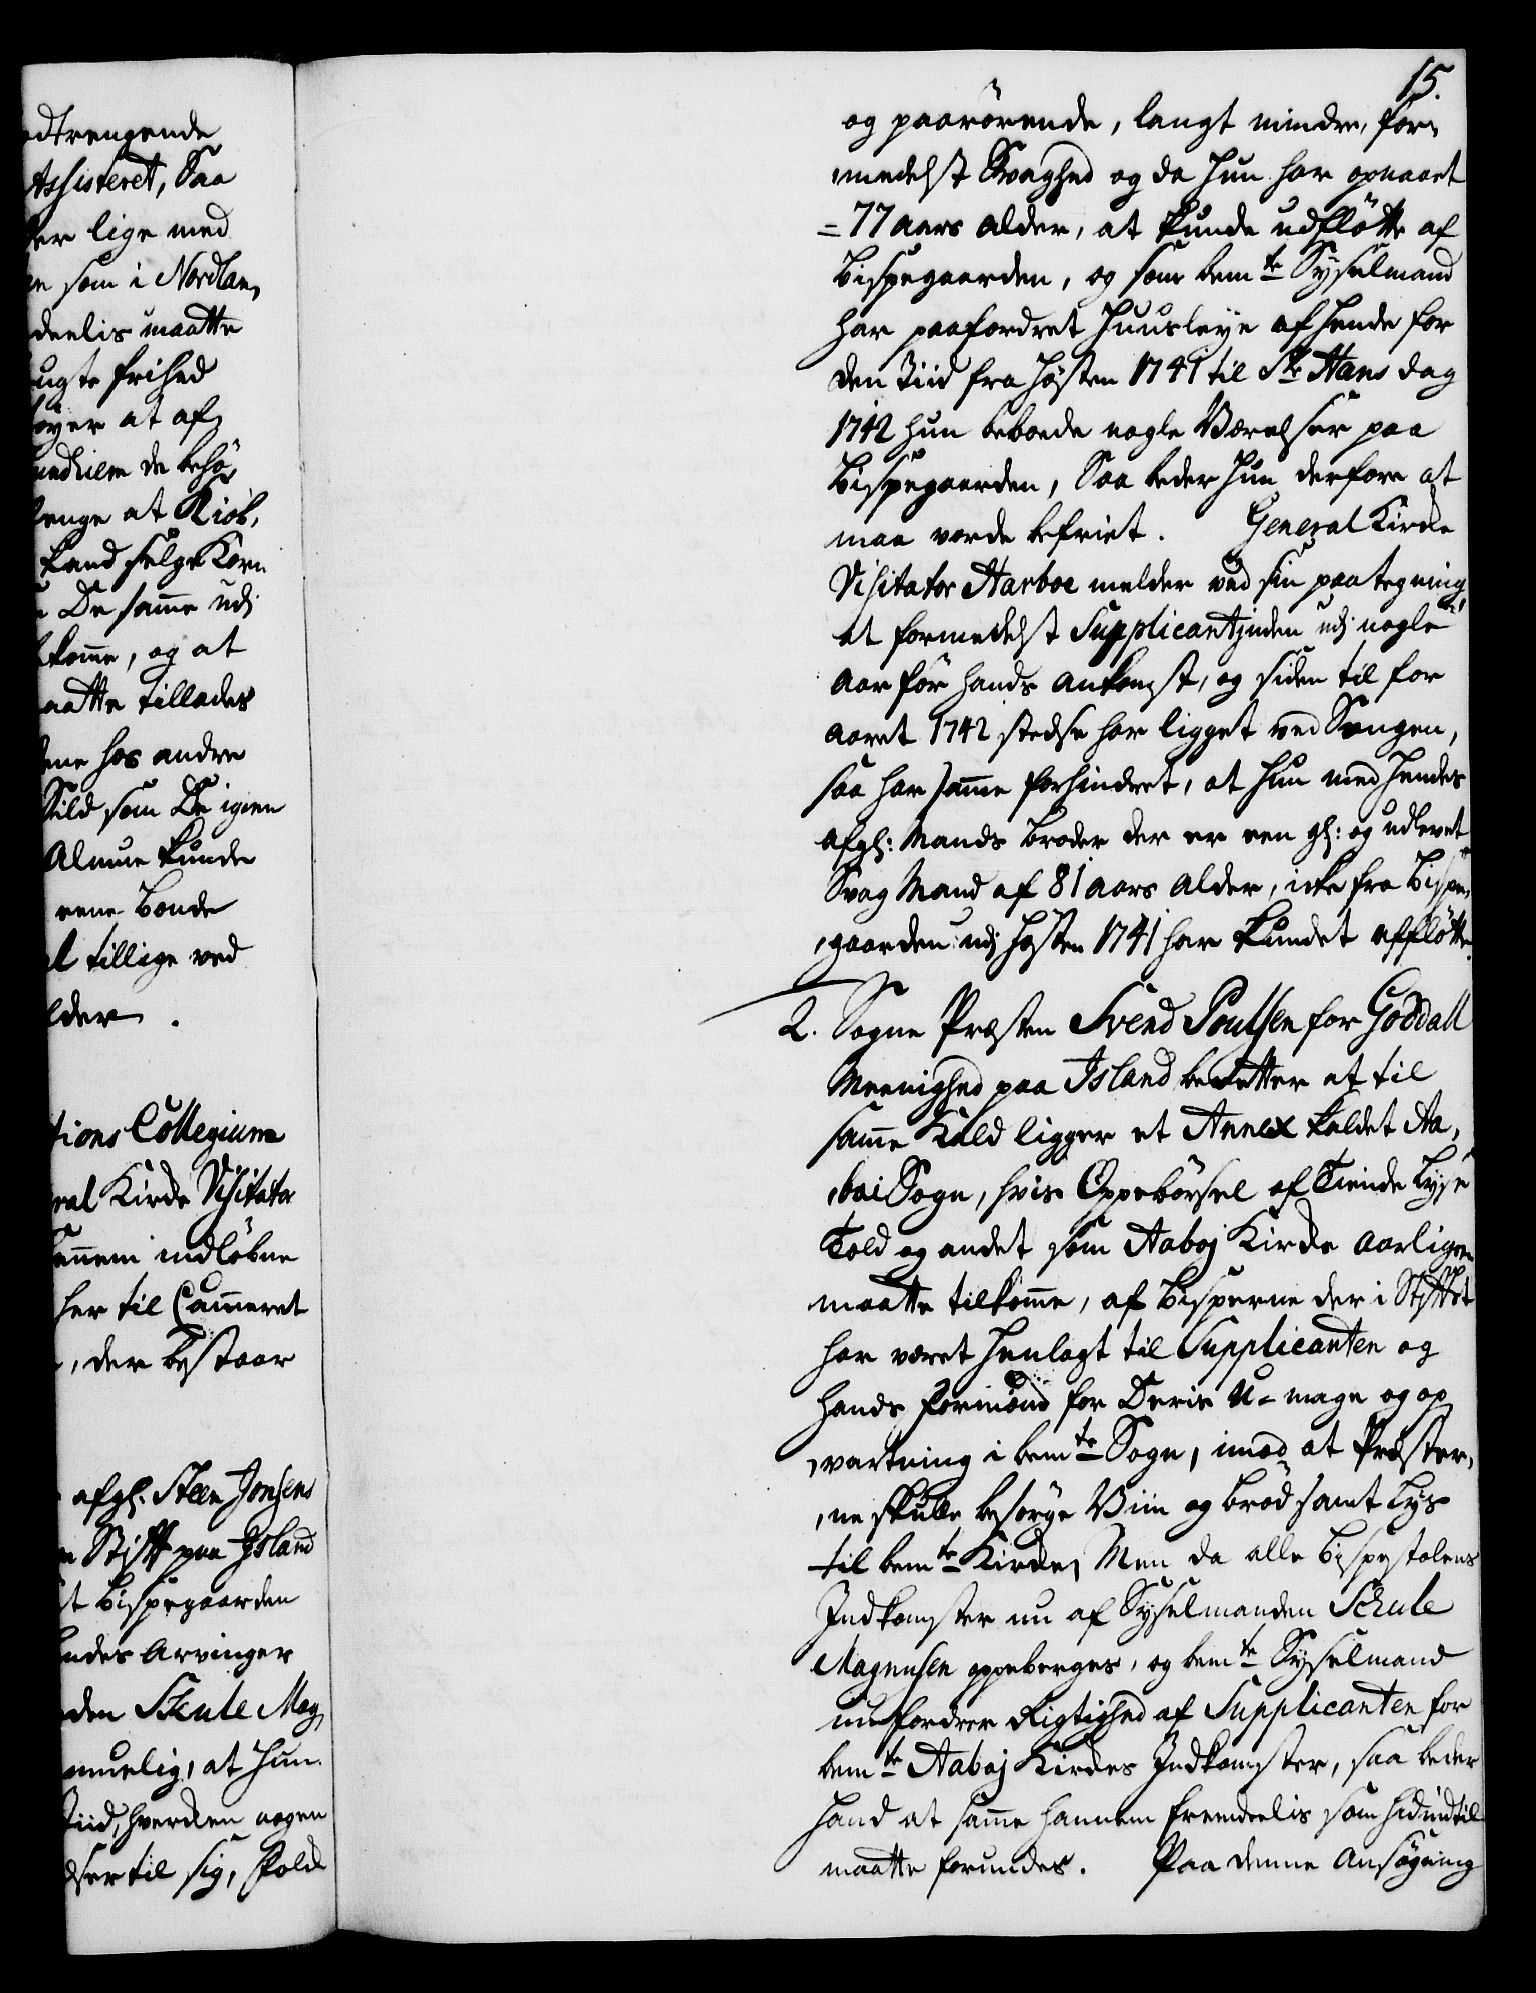 odtrengende
Assisteret, Saa
er lige med
som i Nordlan,
deelis maatte
ugte frihed
øyer at af,
undhiem de behø,
lenge at Kiøb,
kand selge Korn
De samme udj
komme, og at
aatte tillades
ene hos andre
Sild som De igien
Almue kunde
eene Bonde
l tillige ved
lder.
tions Collegium
ral Kirche Visitator
hannem indløbne
her til Cammeret
, der bestaar
afgl: Steen Jonsens
Stift paa Jsland
t Bispegaarden
endes Arvinger
den Schule Mag,
muelig, at hun
Tiid, hverken nogen
dser til sig, skold
15.
og paarørende, langt mindre, for,
,medelst Svaghed og da hun har opnaaet
= 77 aars Alder, at kunde udfløtte af
Bispegaarden, og som bemte Sysselmand
har paafordret Huusleye af hende for
den Tiid fra Høsten 1741 til Ste Hans dag
1742 hun beboede nogle Værelser paa
Bispegaarden, Saa beder hun derfore at
maa vorde befriet. General Kirche
Visitator Harboe melder ved sin paategning
at formedelst Supplicantjnden udj nogle
Aar før hands Ankomst, og siden til for
aaret 1742 stedse har ligget ved Sengen,
saa har samme forhindret, at hun med hendes
afgl: Mands Broder der er een gl: og udlevet
Svag Mand af 81 aars Alder, icke fra Bispe,
,gaarden udj Høsten 1741 har kundet affløtte.
2. Sogne Præsten Svend Poulsen for Goddall
Meenighed paa Island beretter at til
samme Kald ligger et Annex kaldet Aa,
,bai Sogn, hvis Oppebørsel af Tiende Lyse
Told og andet som Aaboj Kirche Aarligen
maatte tilkomme, af Bisperne der i Stiftet
har været henlagt til Supplicanten og
hands Formænd for Deris U-mage og op,
,vartning i bemte Sogn, imod at Præster,
,ne skulle besørge Viin og brød samt Lys
til bemte Kirche, Men da alle Bispestolens
Indkomster nu af Sysselmanden Schule
Magnusen oppeberges, og bemte Sysselmand
nu fordrer Rigtighed af Supplicanten for
bemte Aaboj Kirches Indkomster, saa beder
hand at samme hannem fremdeelis som hidindtil
maatte forundes. Paa denne Ansøgning